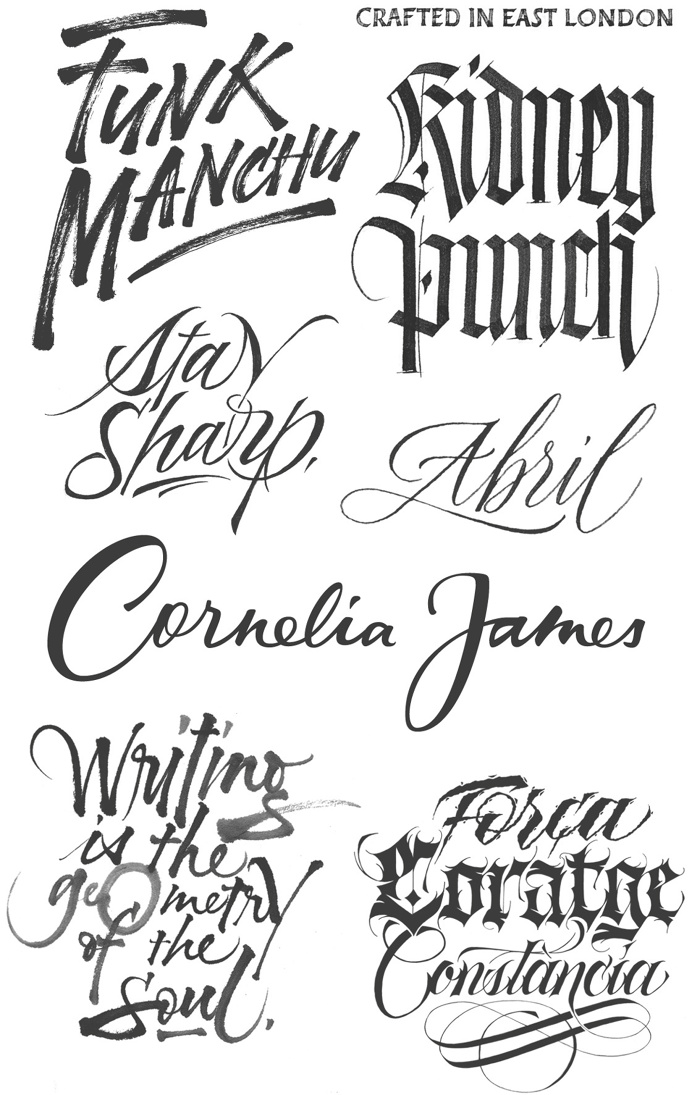 CRAFTED IN EAST LONDON
FUNK
MANCHU
Kidney
punch
Stay
Sharp.
Abril
Cornelia James
Writing
is the
geometry
of the
soul.
Força
Coratge
Constància